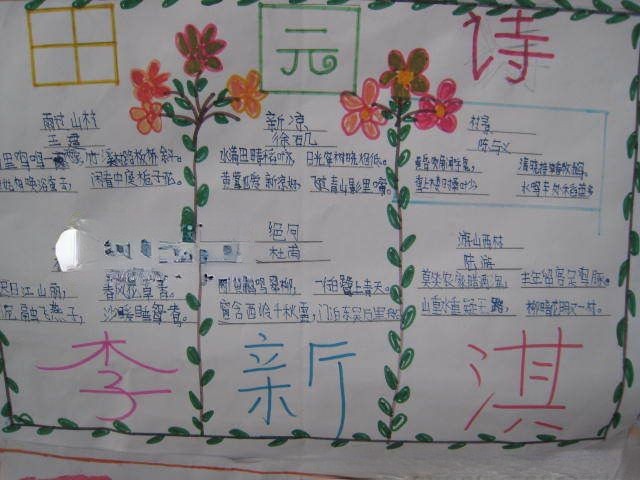 田园诗
雨过山村
王建
里鸡鸣 板桥斜。
浴蚕去，闲看中庭栀子花。
新凉
徐玑
水满田畴稻叶齐，日光穿树晓烟低。
黄莺也爱新凉好，飞过青山影里啼。
村景
陈与义
黄昏吹角 清晓
水鸣车处稻苗多
日江山丽，春风花草香。
融飞燕子，沙暖睡鸳鸯。
绝句
杜甫
鸣翠柳，一行白鹭上青天。
窗含西岭千秋雪，门泊东吴万里船
游山西林
陆游
莫笑农家腊酒浑，丰年留客足鸡豚。
山重水复疑无路，柳暗花明又一村。
李新淇